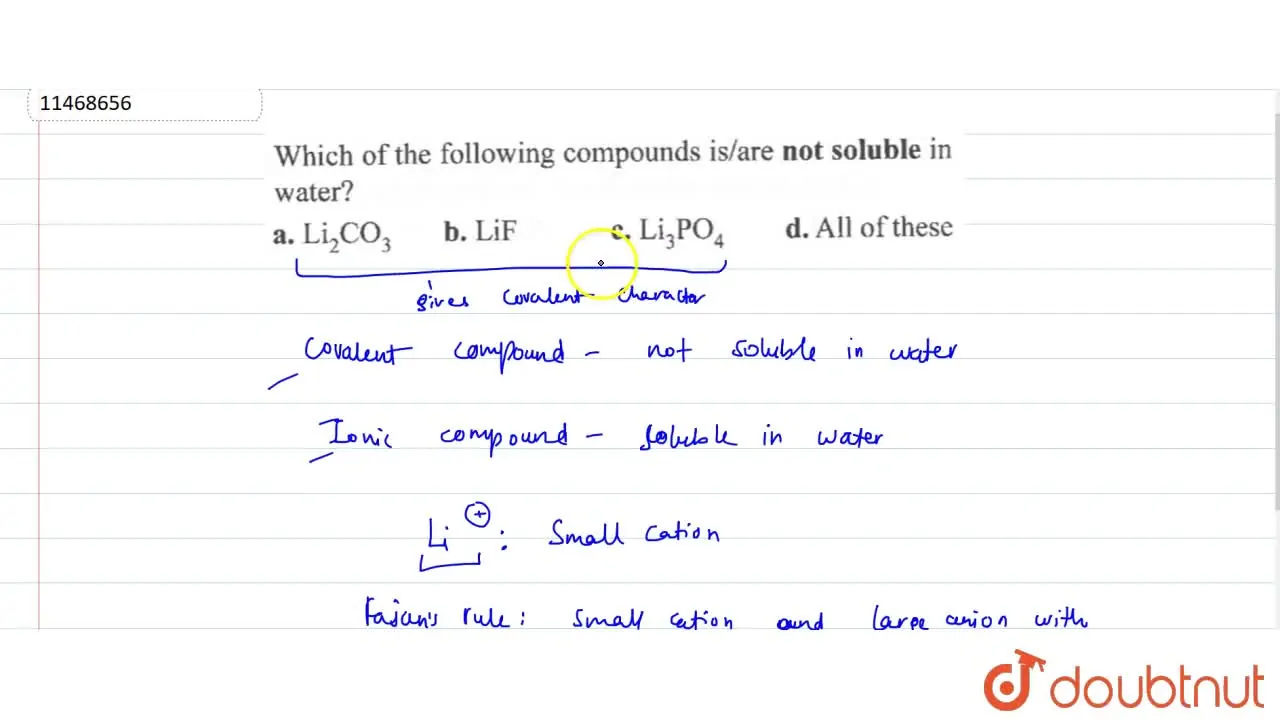 11468656
Which of the following compounds is/are not soluble in
water?
a. Li₂CO₃ b. LiF c. Li₃PO₄ d. All of these
gives covalent character
Covalent compound - not soluble in water
Ionic compound - soluble in water
Li⁺ : Small cation
Fajan's rule: small cation and large anion with
doubtnut